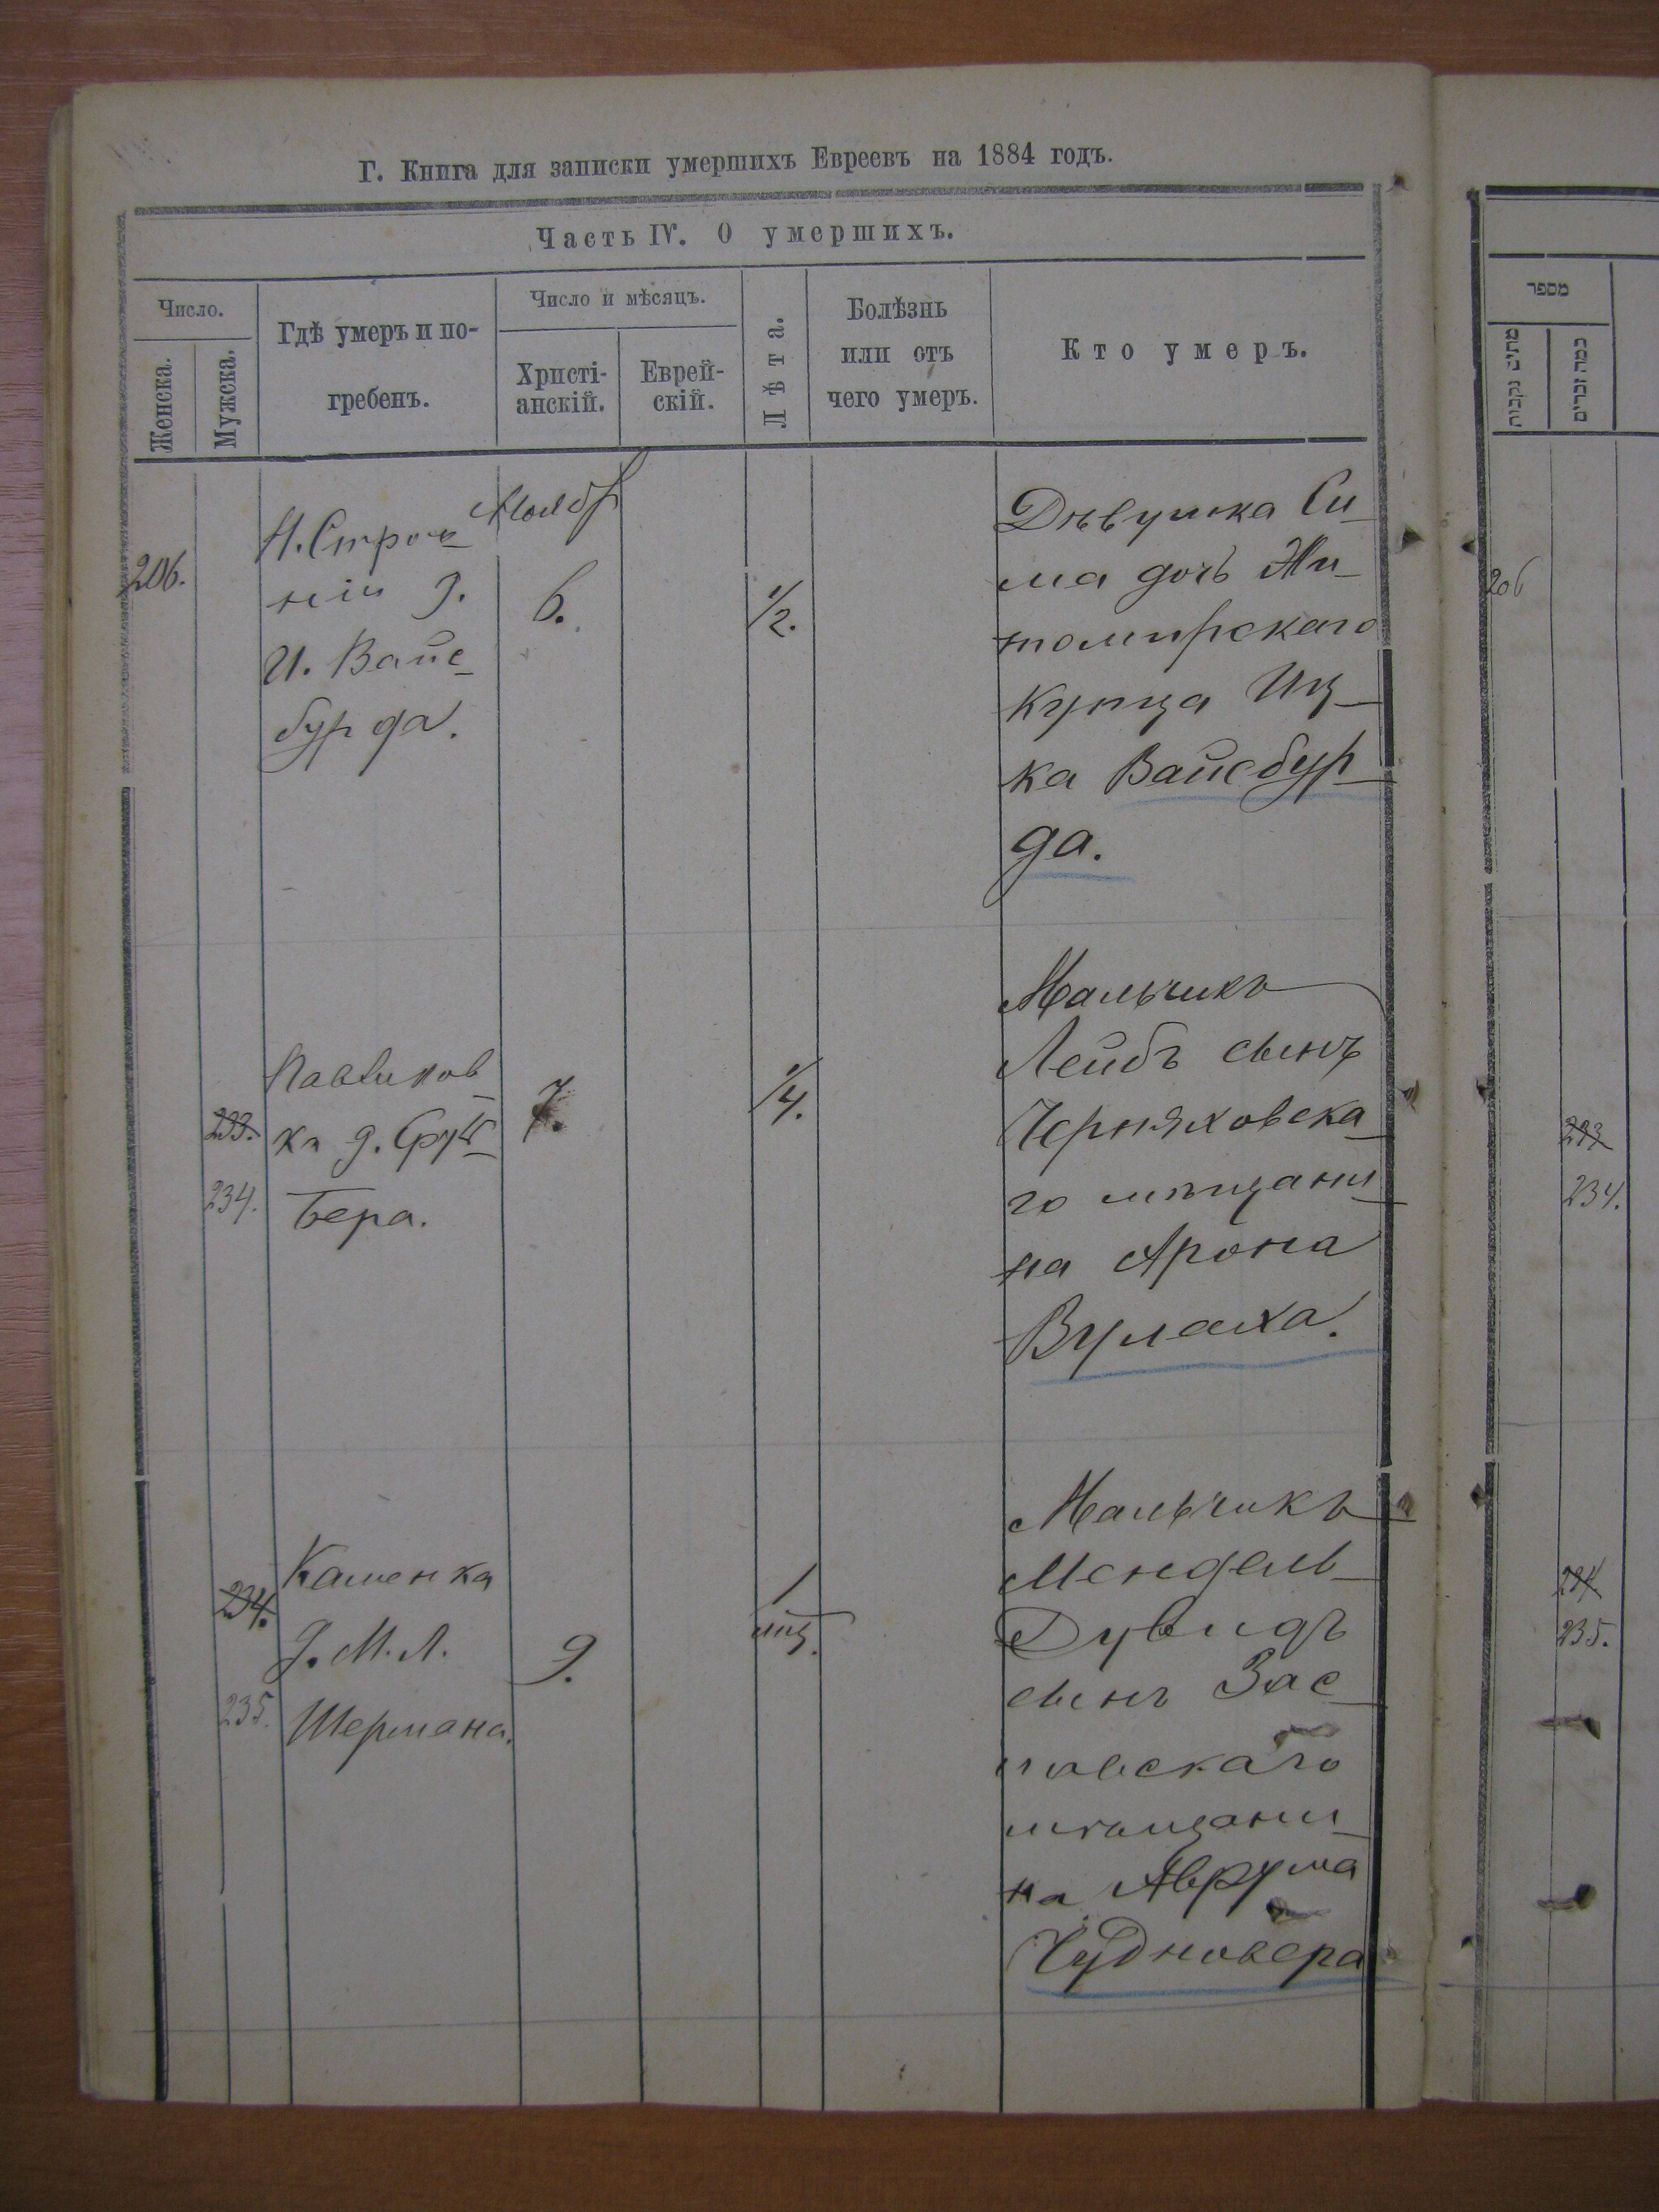 Г. Книга для записки умершихъ Евреевъ на 1884 годъ.
Часть IV. О умершихъ.
Число.
Женска.
Мужска.
Гдѣ умеръ и по-
гребенъ.
Число и мѣсяцъ.
Христі-
анскій.
Еврей-
скій.
Лѣта.
Болѣзнь
или отъ
чего умеръ.
Кто умеръ.
206.
Н. Строе-
ніи д.
И. Вайс-
бурда.
Ноябр
6.
1/2.
Дѣвушка Си-
ма дочь Жи-
томирскаго
купца Иц-
ка Вайсбур-
да.
233.
234.
Павликов-
ка д.
Бера.
7.
1/4.
Мальчикъ
Лейбъ сынъ
Черняховска-
го мѣщани-
на Арона
Вулаха.
234.
235.
Каменка
д. М. Л.
Шермана.
9.
1
мц.
Мальчикъ
Мендель-
Дувидъ
сынъ Зас-
лавскаго
мѣщани-
на Аврума
Чудновера
מספר
מתים נקבות
כמה זכרים
206
233
234.
234
235.